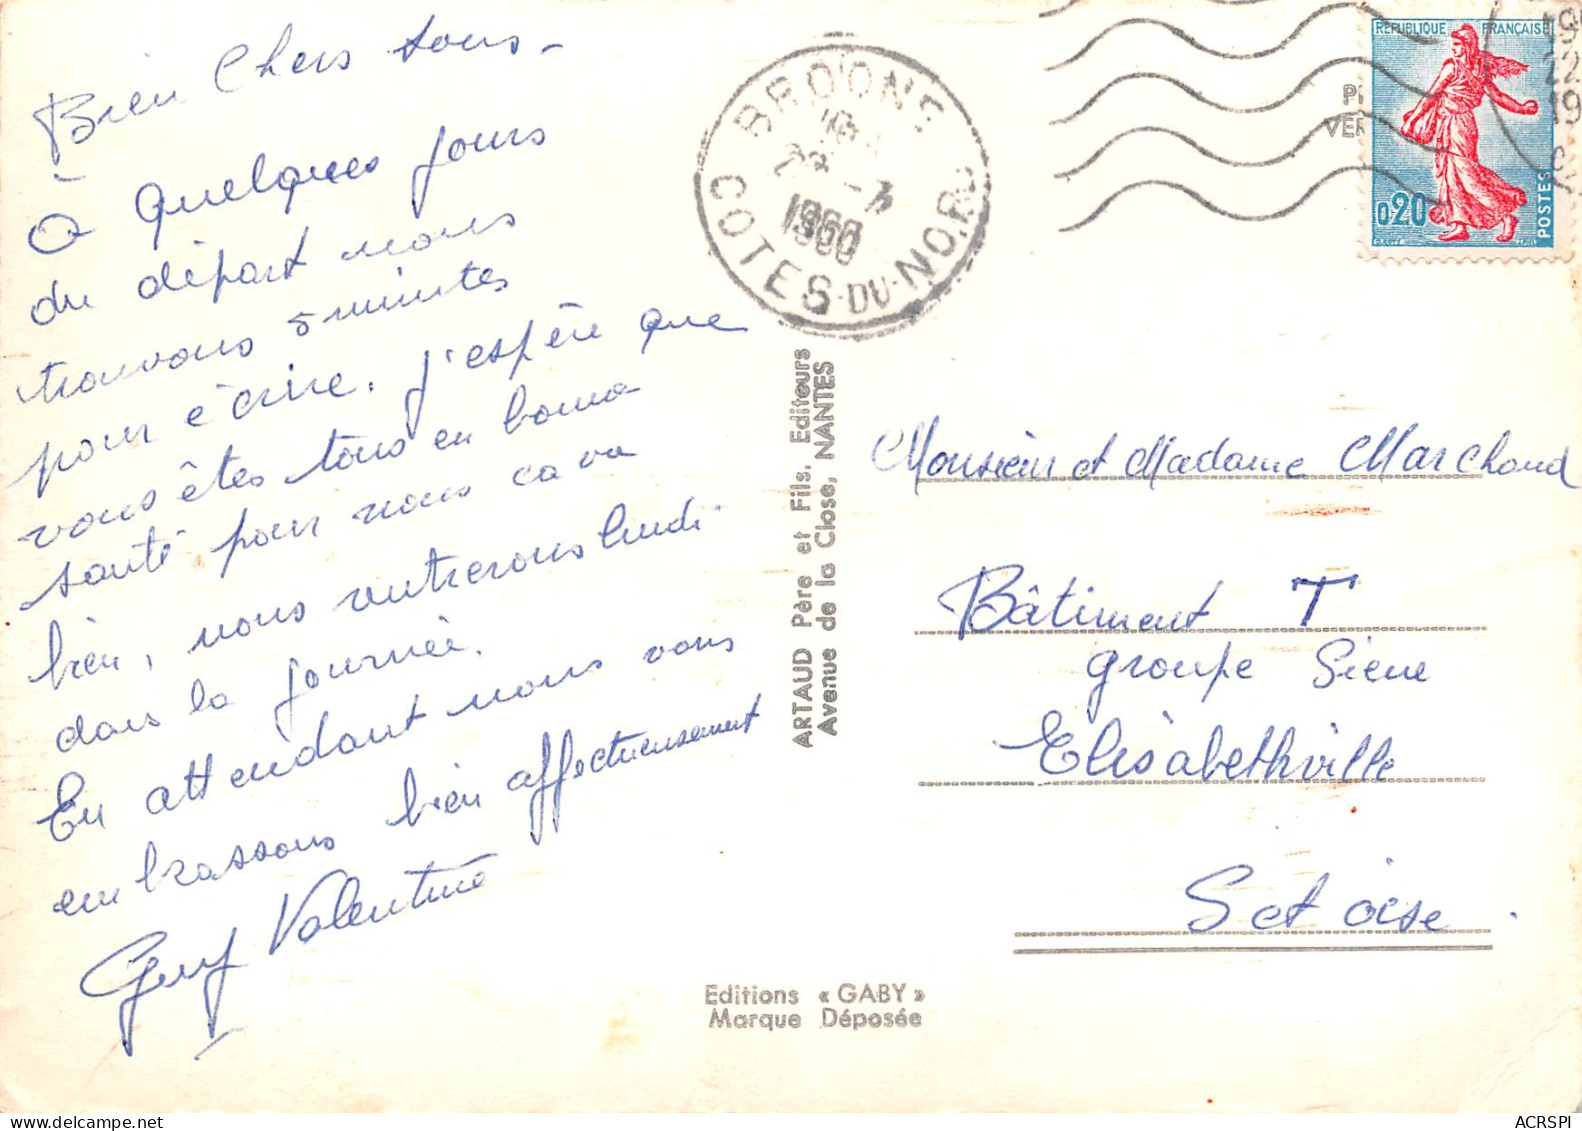 Bien Chers tous -
A quelques jours
du départ nous
trouvons 5 minutes
pour écrire. J'espère que
vous êtes tous en bonne
santé pour nous ca va
bien, nous rentrerons lundi
dans la journée.
En attendant nous vous
embrassons bien affectueusement
Guy Valentine
BROONS
1960
COTES-DU-NORD
RÉPUBLIQUE FRANÇAISE
0,20
POSTES
ARTAUD Père et Fils, Editeurs
Avenue de la Close, NANTES
Monsieur et Madame Marchand
Bâtiment T
groupe Sienne
Elisabethville
S et oise.
Editions « GABY »
Marque Déposée
ACRSPI